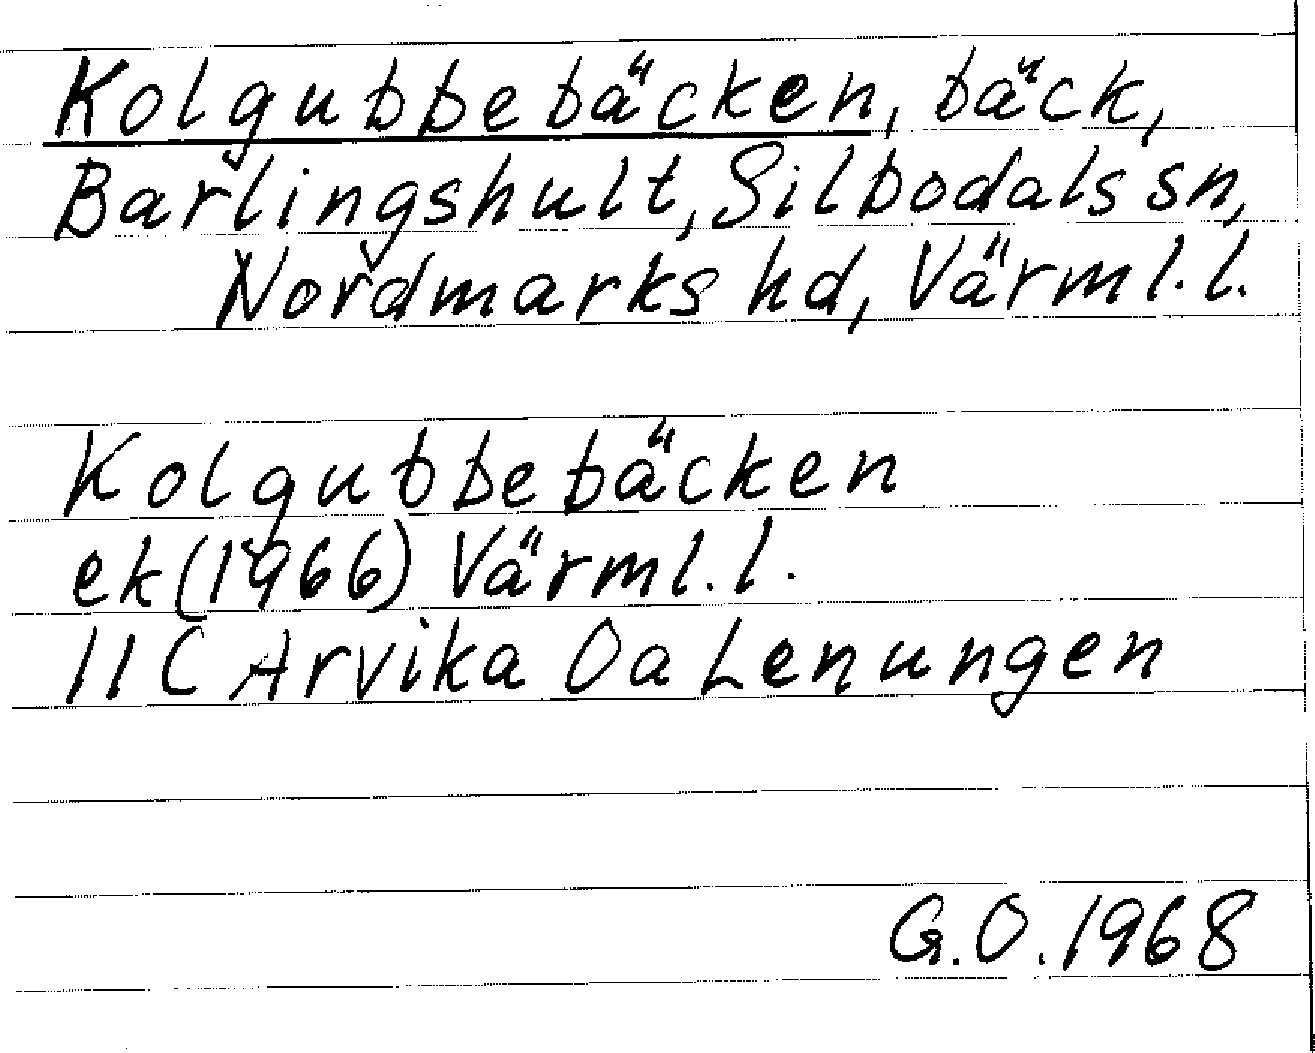 Kolgubbebäcken, bäck,
Barlingshult, Silbodals sn,
Nordmarks hd, Värml. l.
Kolgubbebäcken
ek (1966) Värml. l.
11 C Arvika 0a Lenungen
G.O. 1968